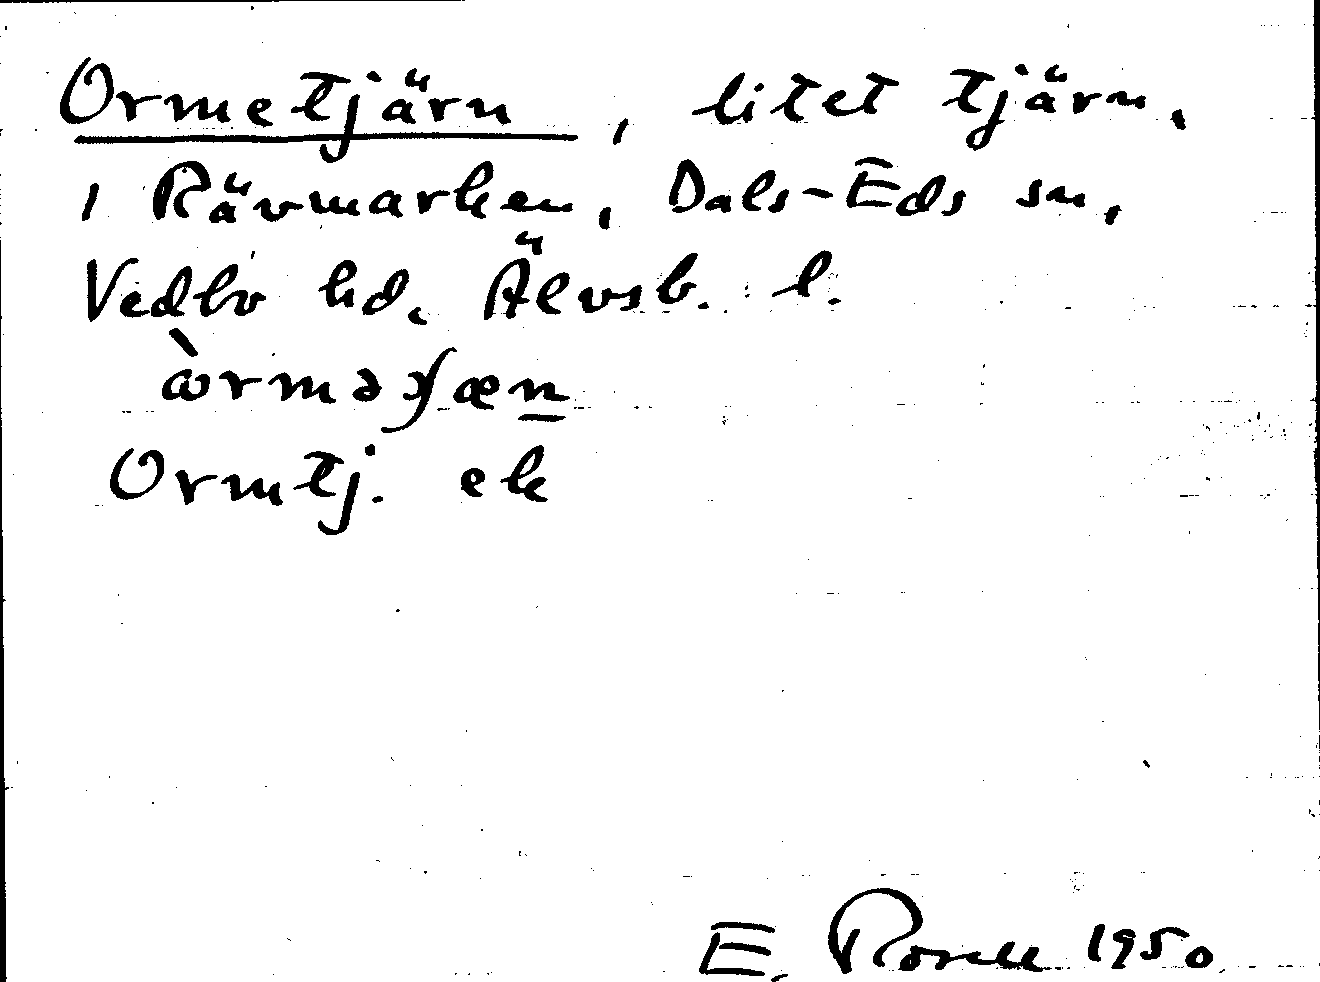 Ormetjärn, litet tjärn,
i Rävmarken, Dals-Eds sn,
Vedbo hd, Älvsb. l.
Ormtj. ek
E. Rosell 1950